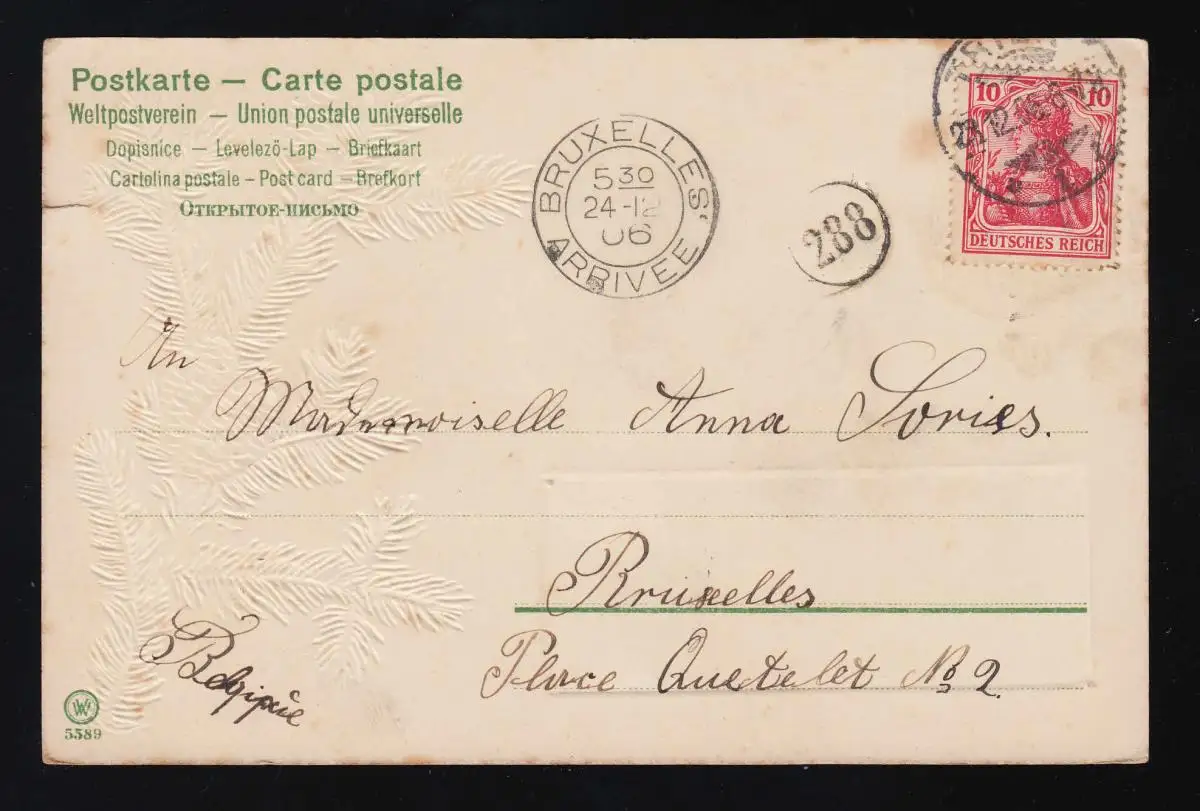 Postkarte – Carte postale
Weltpostverein – Union postale universelle
Dopisnice – Levelező-Lap – Briefkaart
Cartolina postale – Post card – Brefkort
Открытое-письмо
BRUXELLES
5 30
24-12
06
ARRIVEE
288
10 10
DEUTSCHES REICH
An
Mademoiselle Anna Sories.
Bruxelles
Place Quetelet No 2
Belgique
W
5589